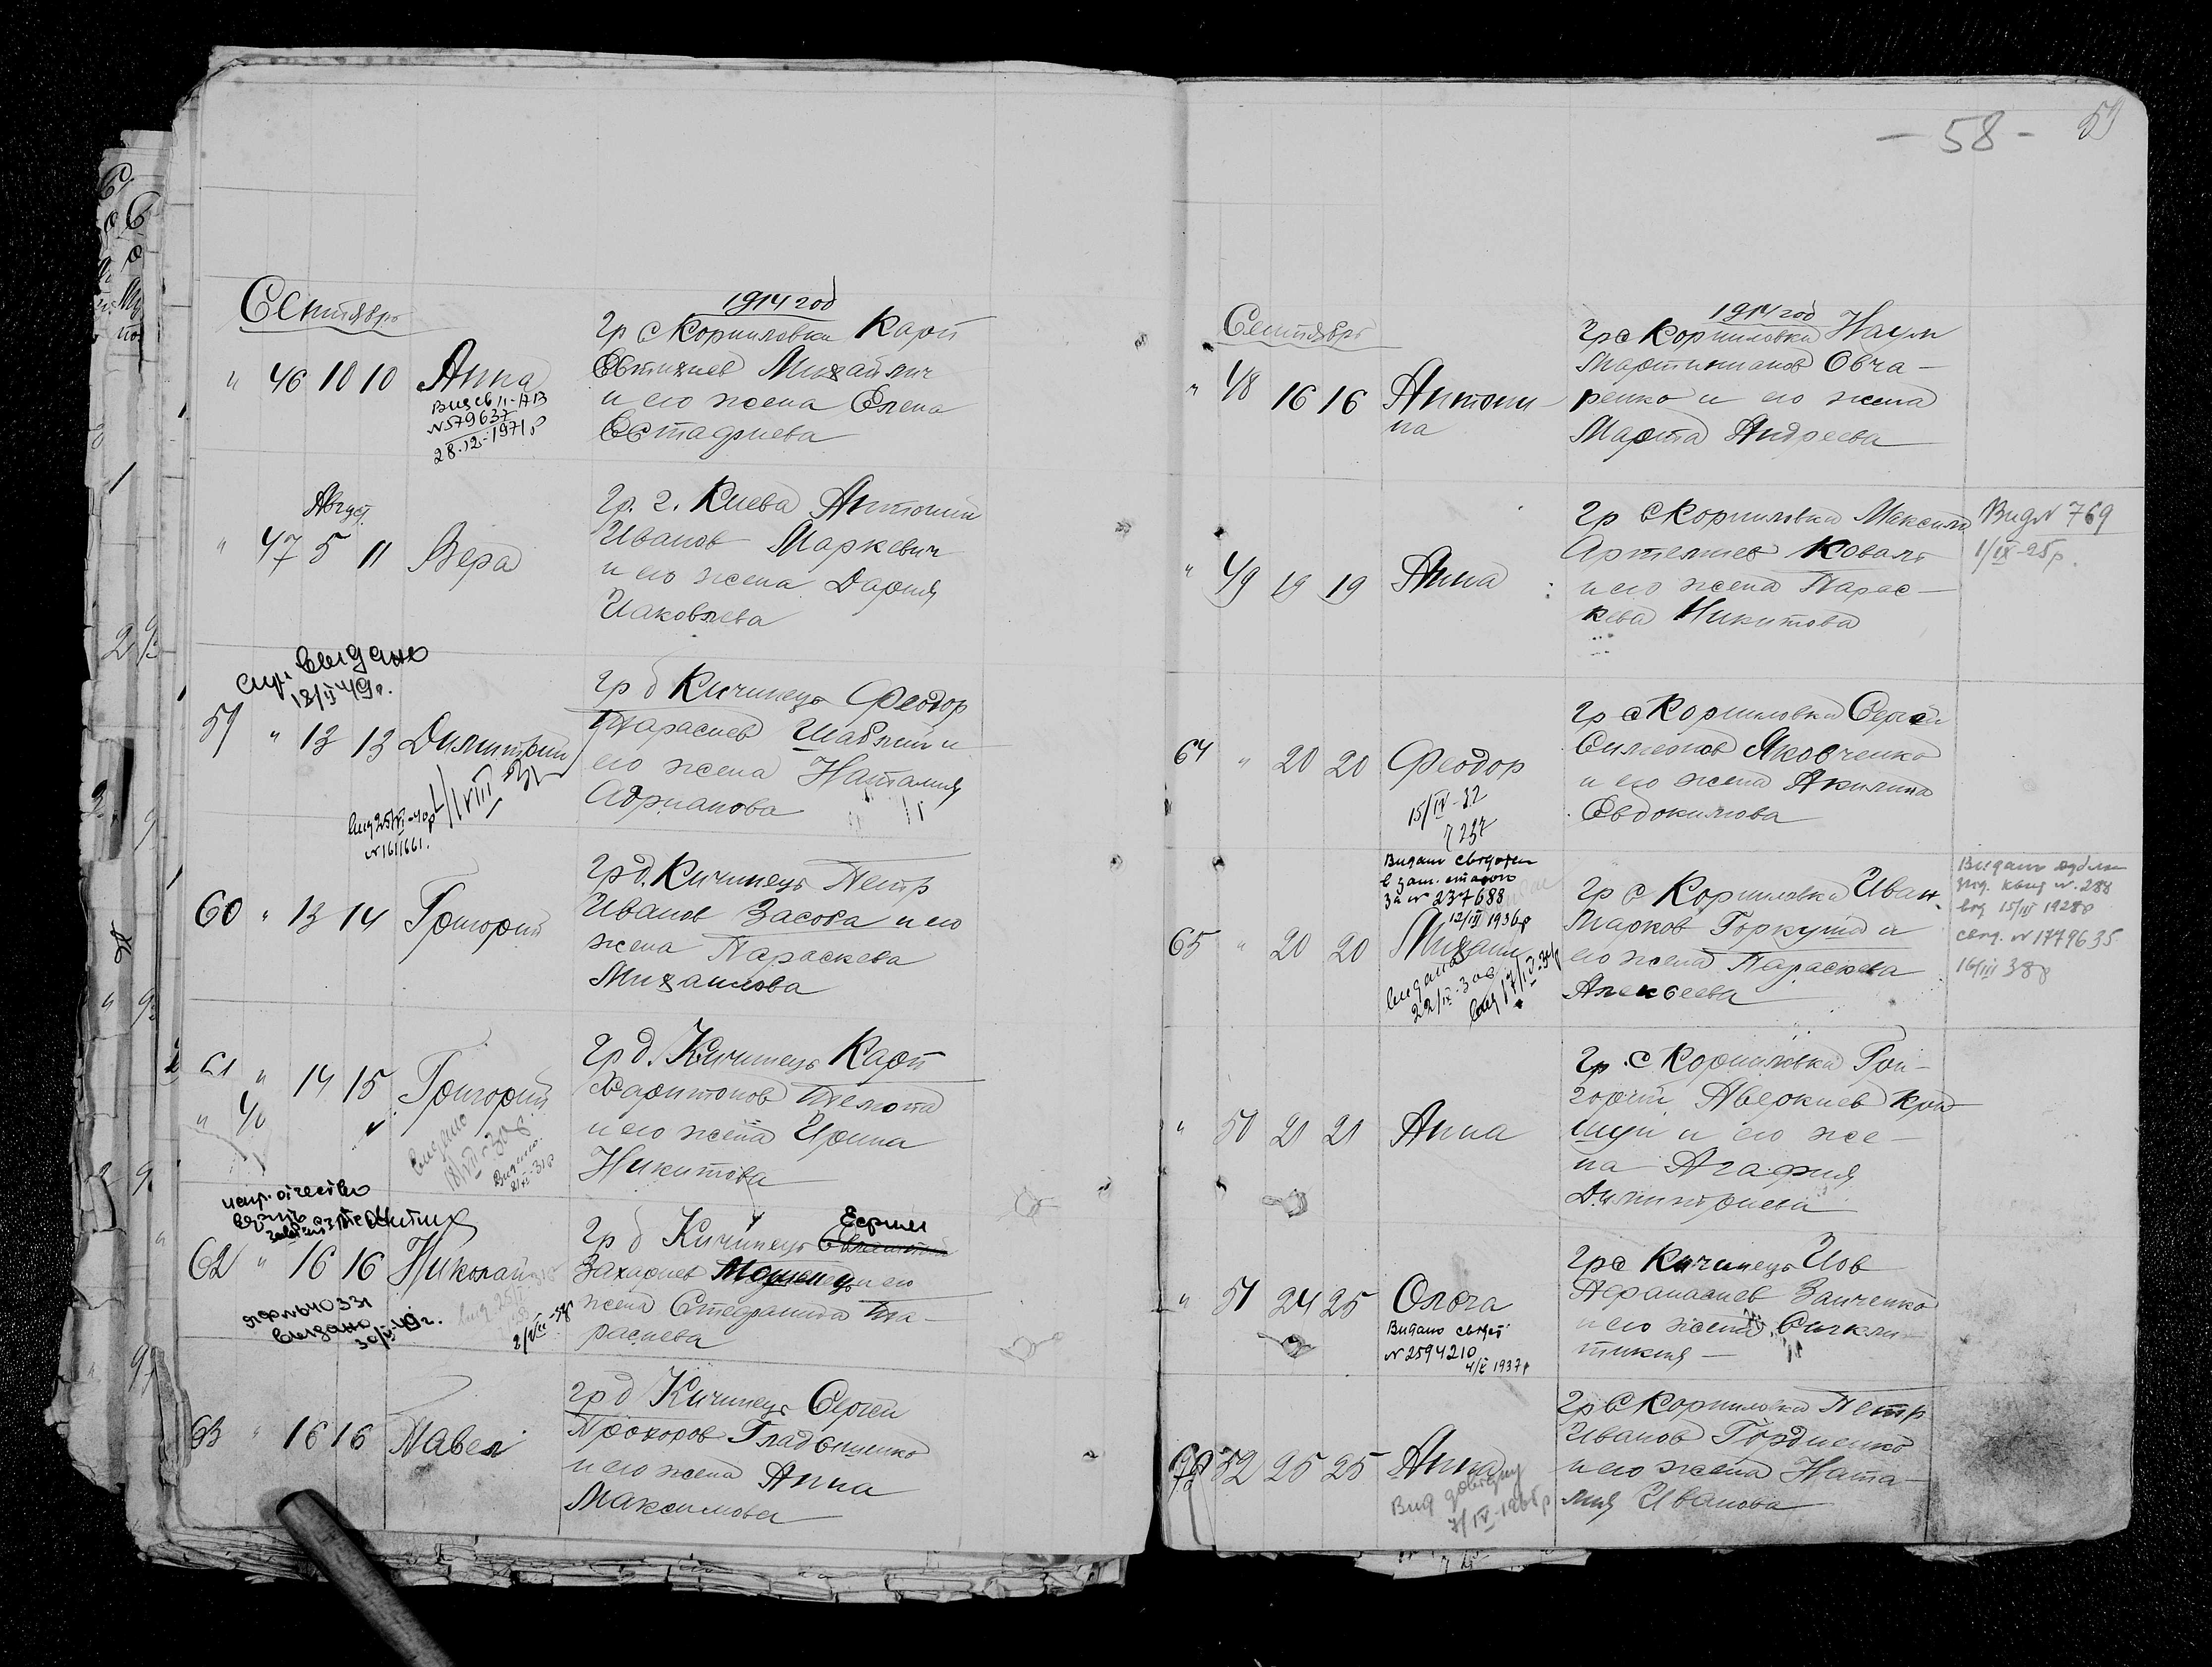 Сентябрь
1914 год
" 46 10 10 Анна
Вид св II-АВ
N 579637
28.12.1971 р
Гр с Корниловки Карп
Евтихиев Михайлич
и его жена Елена
Евстафиева
Август
" 47 5 11 Вера
Гр. г. Киева Антоний
Иванов Маркевич
и его жена Дария
Иаковлева
выдано
18/II 49 г.
59 " 13 13 Димитрий
N 1611661.
Гр д Кичинець Феодор
Тарасиев Шаблий и
его жена Наталия
Адрианова
60 " 13 14 Григорий
Гр д. Кичинець Петр
Иванов Засоба и его
жена Параскева
Михаилова
61 " 14 15 Григорий
" 40
Выдано
Гр д. Кичинець Карп
Харитонов Телюта
и его жена Ирина
Никитова
испр. отчество
62 " 16 16 Николай
выдано
Гр д Кичинець
Захариев и его
жена Стефанида Та-
расиева
63 " 16 16 Павел
Гр д Кичинець Сергей
Прохоров Гладченко
и его жена Анна
Максимова
- 58 - 59
Сентябрь
1914 год
" 48 16 16 Антони-
на
Гр с Корниловки Наум
Мартинианов Овча-
ренко и его жена
Марта Андреева
" 49 19 19 Анна
Гр с Корниловки Максим
Артемиев Коваль
и его жена Парас-
кева Никитова
Вид N 769
1/IX-25 р.
64 " 20 20 Феодор
15/IV-32
7237
Гр с Корниловки Сергей
Симеонов Яковченко
и его жена Акилина
Евдокимова
Видано свідотен
за N 237688
12/III 1936 р
65 " 20 20 Михаил
Гр с Корниловки Иван
Марков Горкуша и
его жена Параскева
Алексеева
N. 288
15/III 1928 р
N 1779635
16/III 38 р
" 50 21 21 Анна
Гр. с Корниловки Гри-
горий Аверкиев Кри-
шун и его же-
на Агафия
Димитриева
" 51 24 25 Ольга
Видано свідот
N 2594210
4/X 1937 р
Гр с Кичинець Иов
Афанасиев Заиченко
и его жена Синкли-
тикия
52 25 25 Анна
Вид довідку
7/IV-1965 р
Гр с Корниловки Петр
Иванов Гордиенко
и его жена Ната-
лия Иванова